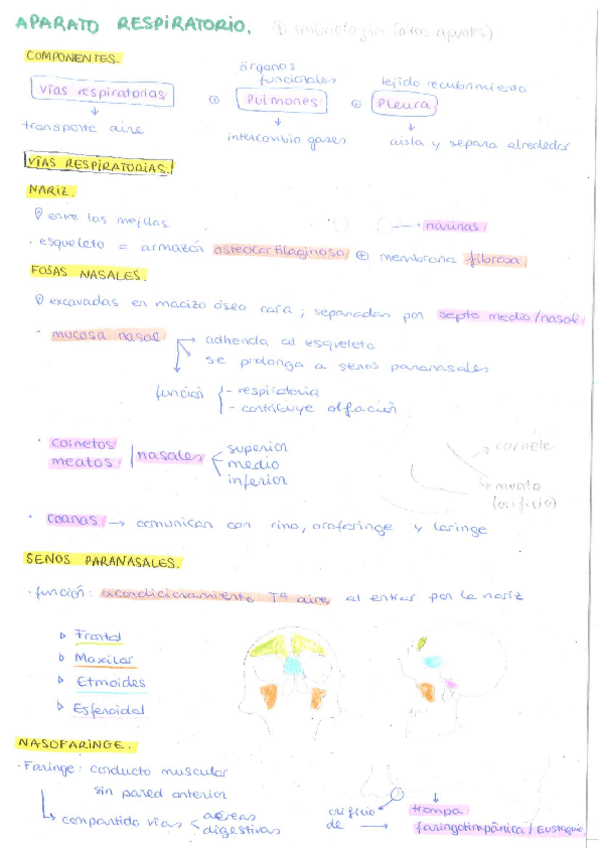 APARATO RESPIRATORIO. ⊕ embriología (otros apuntes)
COMPONENTES.
vías respiratorias ⊕ Pulmones ⊕ Pleura
órganos funcionales
tejido recubrimiento
transporte aire
intercambia gases
aisla y separa alrededor
VÍAS RESPIRATORIAS.
NARIZ.
entre las mejillas.
→ narinas
· esqueleto = armazón osteocartilaginoso ⊕ membrana fibrosa
FOSAS NASALES.
excavadas en macizo óseo cara; separadas por septo medio/nasal
· mucosa nasal → adherida al esqueleto
se prolonga a senos paranasales
función - respiratoria
- contribuye olfación
· cornetes
meatos
nasales
superior
medio
inferior
→ cornete
→ meato
(orificio)
· coanas → comunican con rino, orofaringe y laringe
SENOS PARANASALES.
· función: acondicionamiento Tª aire al entrar por la nariz
Frontal
Maxilar
Etmoides
Esfenoidal
NASOFARINGE.
· Faringe: conducto muscular
sin pared anterior
compartido vías
aéreas
digestivas
orificio
de →
trompa
faringotimpánica / Eustaquio